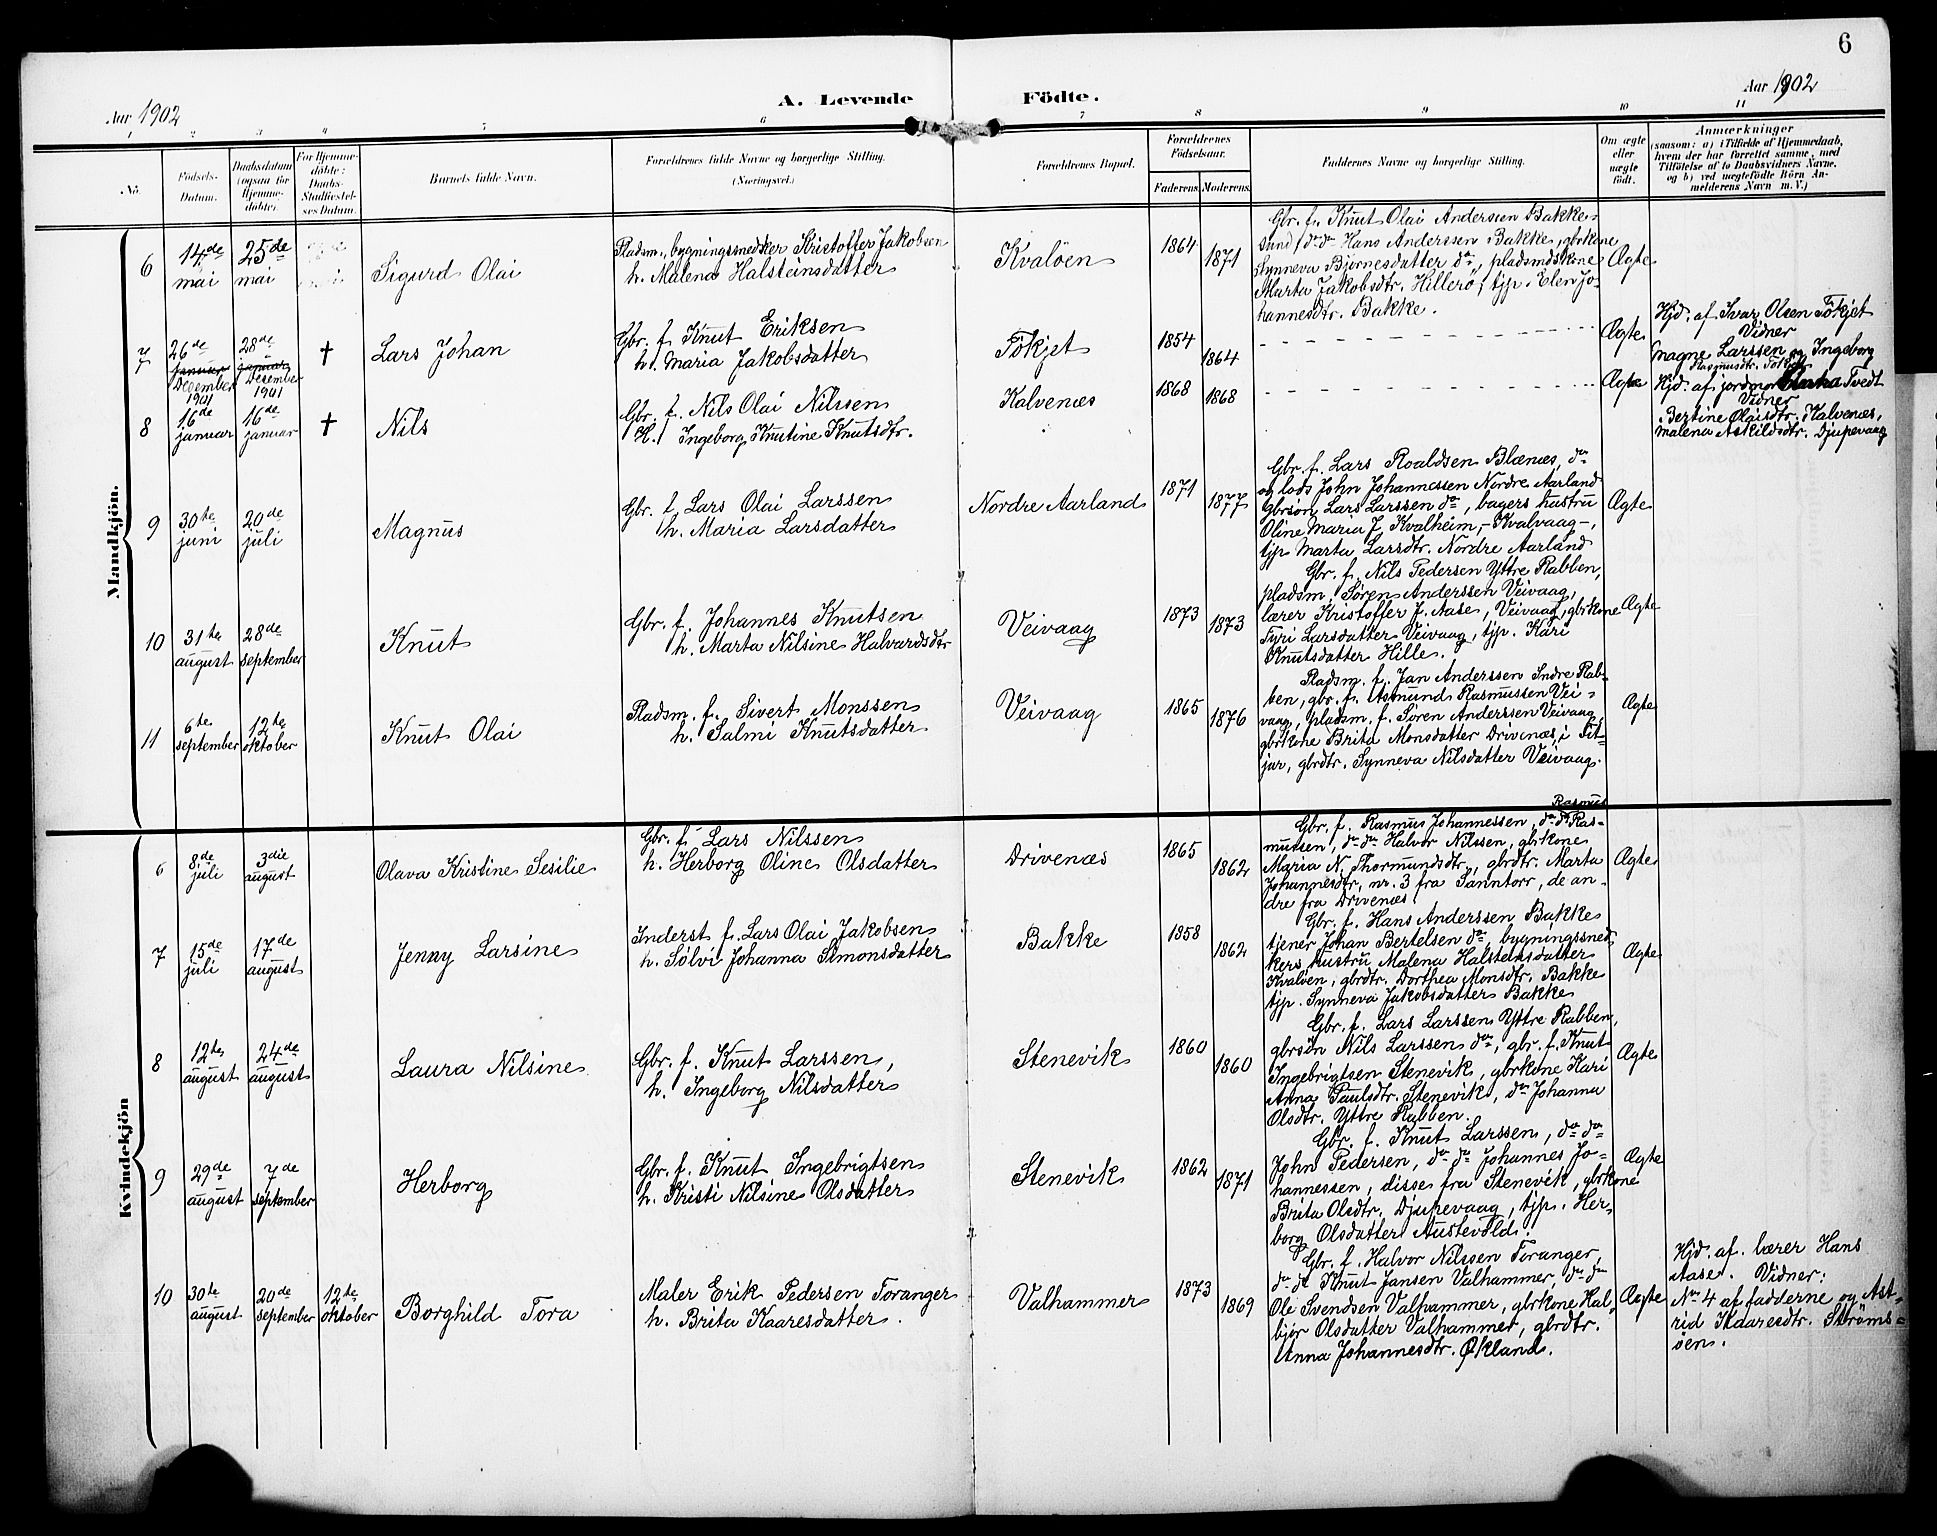 6
Aar 1902
A. Levende Födte.
Aar 1902
1 2 3 4 5 6 7 8 9 10 11
No.
Födsels-
Datum.
Daabsdatum
(ogsaa for
Hjemme-
döbte).
For Hjemme-
döbte:
Daabs-
Stadfæstel-
ses Datum.
Barnets fulde Navn.
Forældrenes fulde Navne og borgerlige Stilling.
(Næringsvei.)
Forældrenes Bopæl.
Forældrenes
Födselsaar.
Faderens. Moderens.
Faddernes Navne og borgerlige Stilling.
Om ægte
eller
uægte
født.
Anmærkninger
(saasom: a) i Tilfælde af Hjemmedaab,
hvem der har forrettet samme, med
Tilföielse af to Daabsvidners Navne.
og b) ved uægtefödte Börn An-
melderens Navn m. V.)
Mandkjön.
6
14de
mai
25de
mai
Sigurd Olai
Pladsm., bygningssnedker Kristoffer Jakobsen
h. Malena Halsteinsdatter
Kvalöen
1864
1871
Gbr. f. Knut Olai Andersen Bakke-
sund, do do Hans Anderssen Bakke, gbrkone
Synneva Bjørnesdatter do, pladsmdskone
Marta Jakobsdtr. Hillerö, tjp. Elen Jo-
hannesdtr. Bakke.
Ægte
7
26de
januar
December
1901
28de
januar
Desember
1901
†
Lars Johan
Gbr. f. Knut Eriksen
h. Maria Jakobsdatter
Fokjet
1854
1864
Ægte
Hjd. af Ivar Olsen Fokjet
Vidner
Magne Larssen og Ingeborg
Rasmusdtr. Fokjet
8
16de
januar
16de
januar
†
Nils
Gbr. f. Nils Olai Nilssen
h. Ingeborg Knutine Knutsdtr.
Kalvenæs
1868
1868
Ægte
Hjd. af jordmor Marta Tvedt
Vidner
Bertine Olaisdtr. Kalvenæs,
Malena Askildsdtr. Djupevaag
9
30te
juni
20de
juli
Magnus
Gbr. f. Lars Olai Larssen
h. Maria Larsdatter
Nordre Aarland
1871
1877
Gbr. f. Lars Roaldsen Blænæs, do
og lods John Johannessen Nordre Aarland
Gbrsön Lars Larssen do, bagers hustru
Oline Maria J. Kvalheim, - Kvalvaag -,
tjp Marta Larsdtr. Nordre Aarland
Ægte
10
31te
august
28de
september
Knut
Gbr. f. Johannes Knutsen
h. Marta Nilsine Halvardsdtr
Veivaag
1873
1873
Gbr. f. Nils Pedersen Yttre Rabben,
pladsm. Søren Anderssen Veivaag,
lærer Kristoffer J. Aase, Veivaag, gbrkone
Tyri Larsdatter Veivaag, tjp. Kari
Knutsdatter Hille.
Ægte
11
6te
september
12te
oktober
Knut Olai
Pladsm. f. Sivert Monssen
h. Salmi Knutsdatter
Veivaag
1865
1876
Pladsm. f. Jan Anderssen Indre Rab-
ben, gbr. f. Asmund Rasmussen Vei-
vaag, pladsm. f. Søren Anderssen Veivaag,
gbrkone Brita Monsdatter Drivenæs i Fit-
jar, gbrdtr. Synneva Nilsdatter Veivaag.
Ægte
Kvindekjön
6
8de
juli
3die
august
Olava Kristine Sesilie
Gbr. f. Lars Nilssen
h. Herborg Oline Olsdatter
Drivenæs
1865
1862
Rasmus
Gbr. f. Rasmus Johannessen, do do Ras-
mussen, do do Halvor Nilssen, gbrkone
Maria N. Thormundsdtr., gbrdtr. Marta
Johannesdtr, nr. 3 fra Sanntorr, de an-
dre fra Drivenæs
Ægte
7
15de
juli
17de
august
Jenny Larsine
Inderst f. Lars Olai Jakobsen
h. Sølvi Johanna Simonsdatter
Bakke
1858
1862
Gbr. f. Hans Anderssen Bakke
tjener Johan Bertelsen do, bygningssned-
kers hustru Malena Halsteinsdatter
Kvalöen, gbrdtr. Dorthea Monsdtr. Bakke
tjp. Synneva Jakobsdatter Bakke
Ægte
8
12te
august
24de
august
Laura Nilsine
Gbr. f. Knut Larssen,
h. Ingeborg Nilsdatter
Stenevik
1860
1860
Gbr. f. Lars Larssen Yttre Rabben,
gbrsön Nils Larssen do, gbr. f. Knut
Ingebrigtsen Stenevik, gbrkone Kari
Anna Paulsdtr. Stenevik, do Johanna
Olsdtr. Yttre Rabben.
Ægte
9
29de
august
7de
september
Herborg
Gbr. f. Knut Ingebrigtsen
h. Kristi Nilsine Olsdatter
Stenevik
1862
1871
Gbr. f. Knut Larssen, do do
John Pedersen, do do Johannes Jo-
hannessen, disse fra Stenevik, gbrkone
Brita Olsdtr. Djupevaag, tjp. Her-
borg Olsdatter Austevold.
Ægte
10
30te
august
20de
september
12te
oktober
Borghild Tora
Maler Erik Pedersen Foranger
h. Brita Kaaresdatter.
Valhammer
1873
1869
Gbr. f. Halvor Nilssen Foranger,
do do Knut Jansen Valhammer, do do
Ole Svendsen Valhammer, gbrkone Kal-
björ Olsdatter Valhammer, gbrdtr.
Anna Johannesdtr. Økland.
Ægte
Hjd. af. lærer Hans
Aase. Vidner:
No 4 af fadderne og Ast-
rid Kaaresdtr. Ströms-
öen.